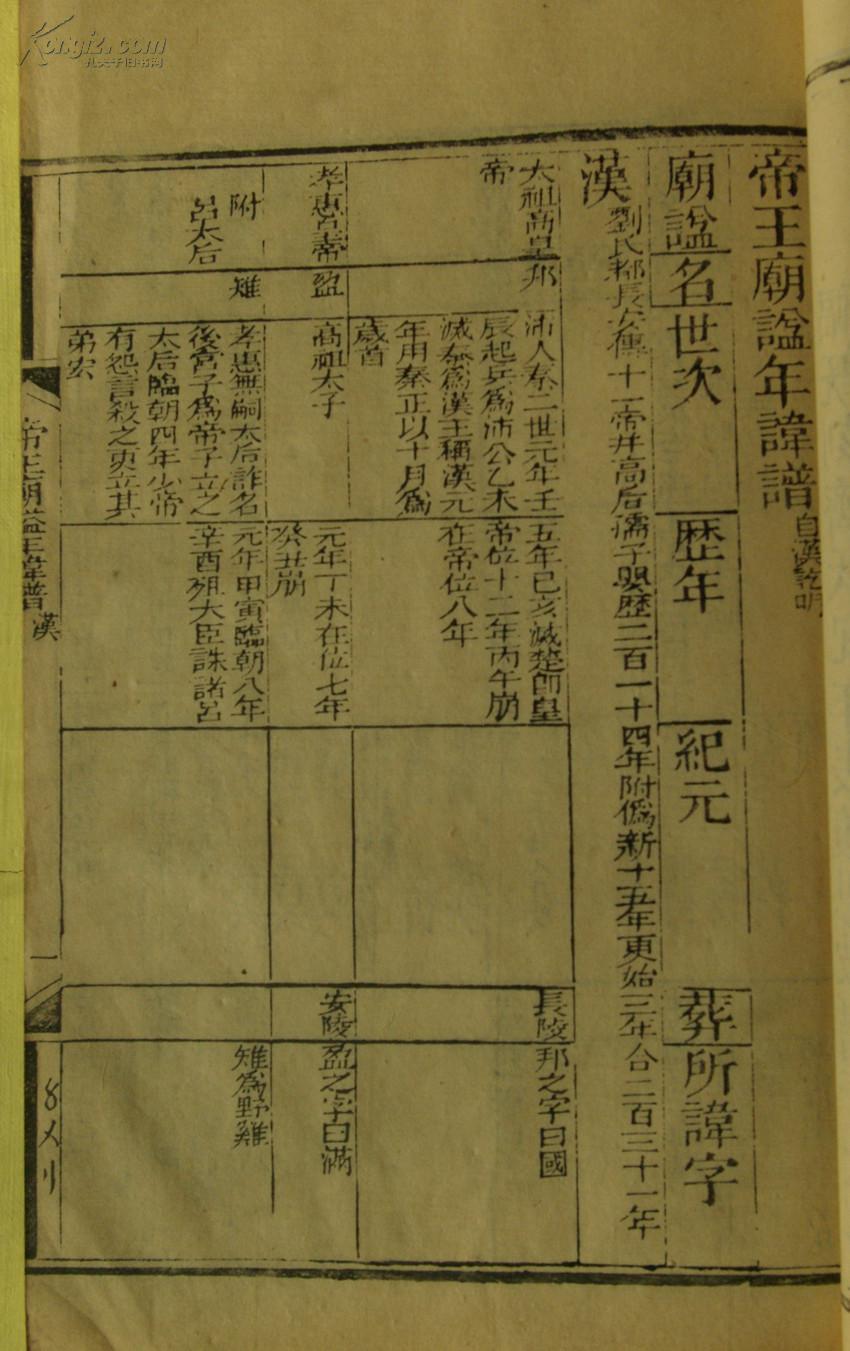 帝王廟諡年諱譜自漢訖明
廟諡名世次歷年紀元葬所諱字
漢劉氏都長安傳十一帝并高后孺子嬰歷二百一十四年附僞新十五年更始三年合二百三十一年
太祖高皇
帝
邦
沛人秦二世元年壬
辰起兵爲沛公乙未
滅秦爲漢王稱漢元
年用秦正以十月爲
歲首
五年已亥滅楚卽皇
帝位十二年丙午崩
在帝位八年
長陵
邦之字曰國
孝惠皇帝
盈
高祖太子
元年丁未在位七年
癸丑崩
安陵
盈之字曰滿
附
呂太后
雉
孝惠無嗣太后詐名
後宮子爲帝子立之
太后臨朝四年少帝
有怨言殺之更立其
弟宏
元年甲寅臨朝八年
辛酉殂大臣誅諸呂
雉爲野雞
帝王廟諡年諱譜 漢
一
Kongfz.com
孔夫子旧书网